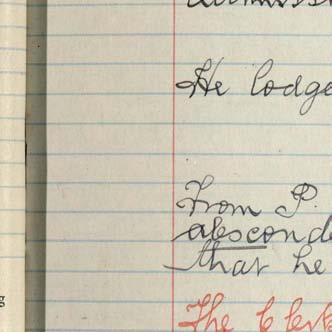 He lodge
From P.
absconde
that he
The Clerk
g